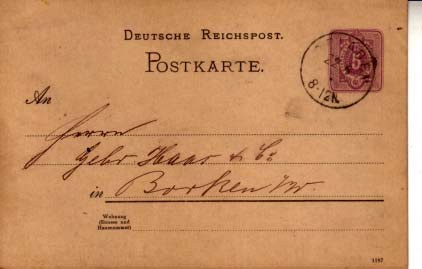 DEUTSCHE REICHSPOST.
POSTKARTE.
8-12N.
An
Herrn
Gebr Haas & Co
in Borken
Wohnung
(Strasse und
Hausnummer)
1187